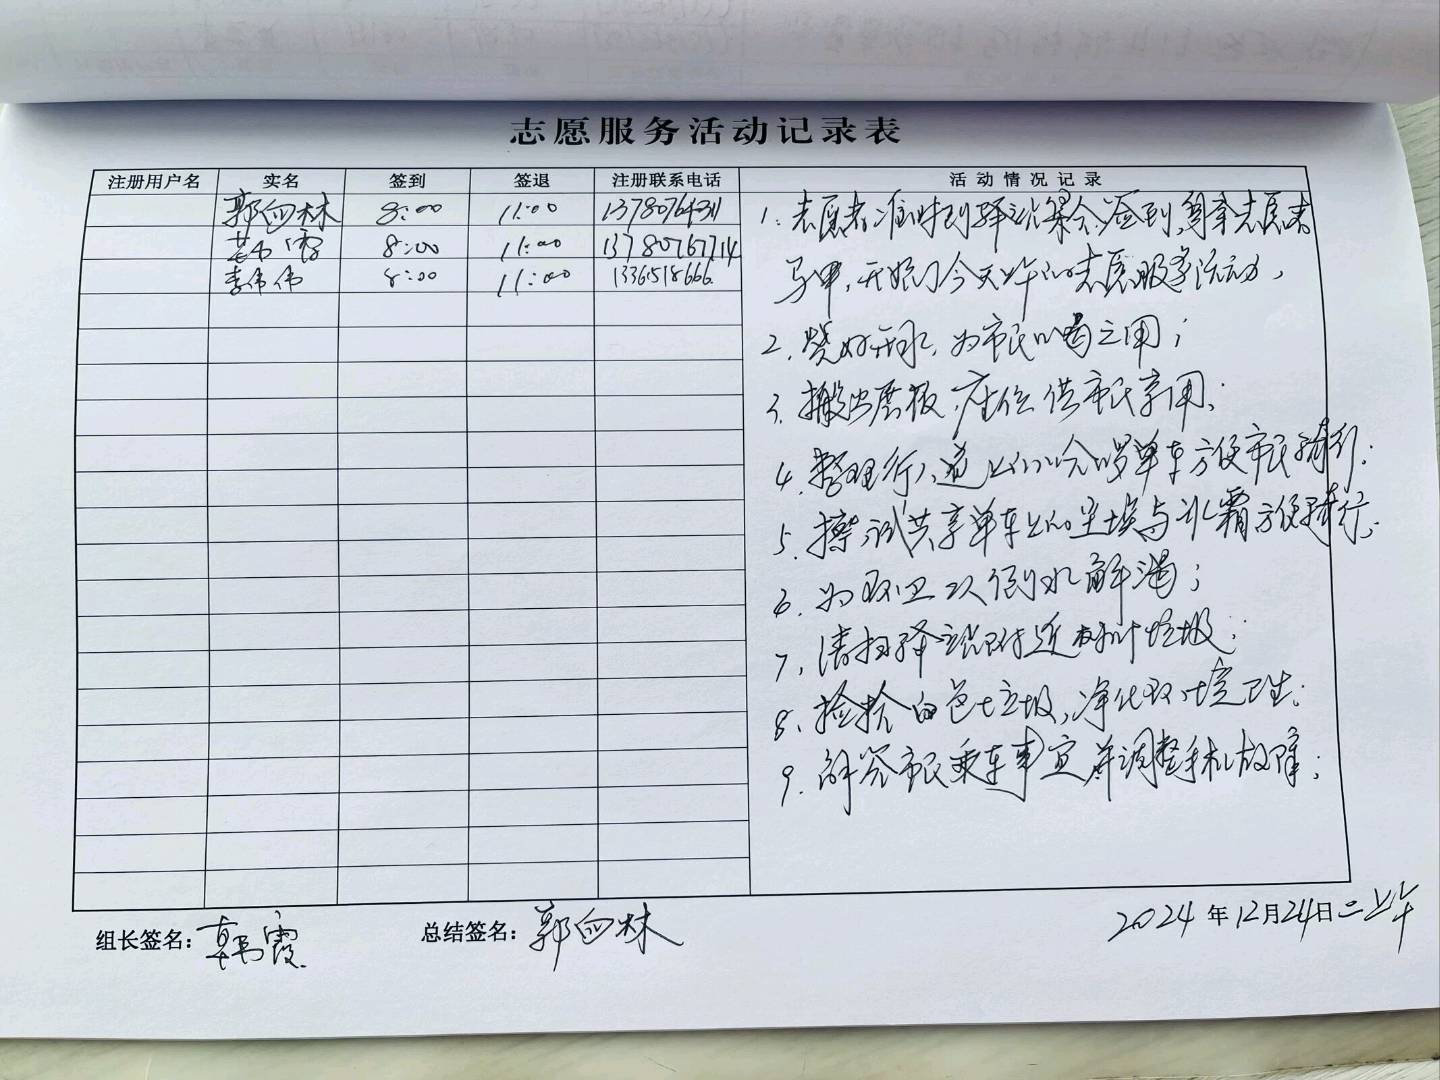 志愿服务活动记录表
注册用户名 实名 签到 签退 注册联系电话 活动情况记录
郭向林 8:00 11:00
韩霞 8:00 11:00 13780767714
李伟伟 8:00 11:00 13361518666
1. 志愿者准时到驿站集合签到,身穿志愿者
马甲,开始了今天上午的志愿服务活动,
2. 烧好开水,为市民喝之用;
3. 搬出展板,座位供市民享用;
4. 整理行人道上的哈啰单车方便市民骑行;
5. 擦试共享单车上的尘埃与冰霜方便骑行;
6. 为环卫工倒水解渴;
7. 清扫驿站附近树叶垃圾;
8. 捡拾白色垃圾,净化环境卫生;
9. 解答市民乘车事宜并调整手机故障;
组长签名: 韩霞 总结签名: 郭向林 2024年12月24日二上午